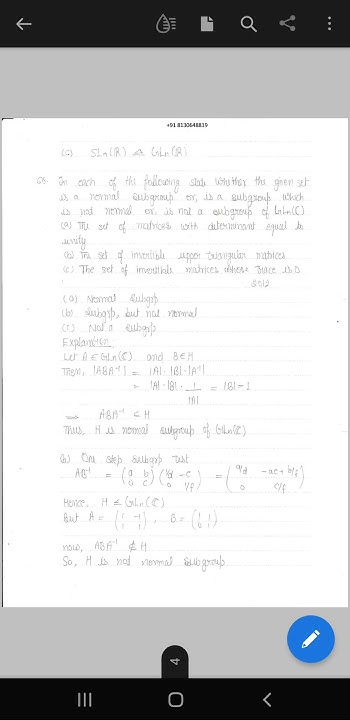 +91 8130648819
(c) SLn(R) ⊴ GLn(R)
58. In each of the following state whether the given set
is a normal subgroup or, is a subgroup which
is not normal or, is not a subgroup of GLn(C)
(a) The set of matrices with determinant equal to
unity
(b) The set of invertible upper triangular matrices
(c) The set of invertible matrices whose trace is 0
2012
(a) Normal subgrp
(b) Subgrp, but not normal
(c) Not a subgrp
Explanation:
Let A ∈ GLn(C) and B ∈ H
Then, |ABA⁻¹| = |A|·|B|·|A⁻¹|
= |A|·|B|·1/|A| = |B| = 1
⟹ ABA⁻¹ ∈ H
Thus, H is normal subgroup of GLn(C)
(b) One step subgrp test
AB⁻¹ = (a b; 0 c) (1/d -e; 0 1/f) = (a/d -ae+b/f; 0 c/f)
Hence, H ≤ GLn(C)
But A = (1 -1; 1 1), B = (1 1; 0 1)
now, ABA⁻¹ ∉ H
So, H is not normal subgroup
4